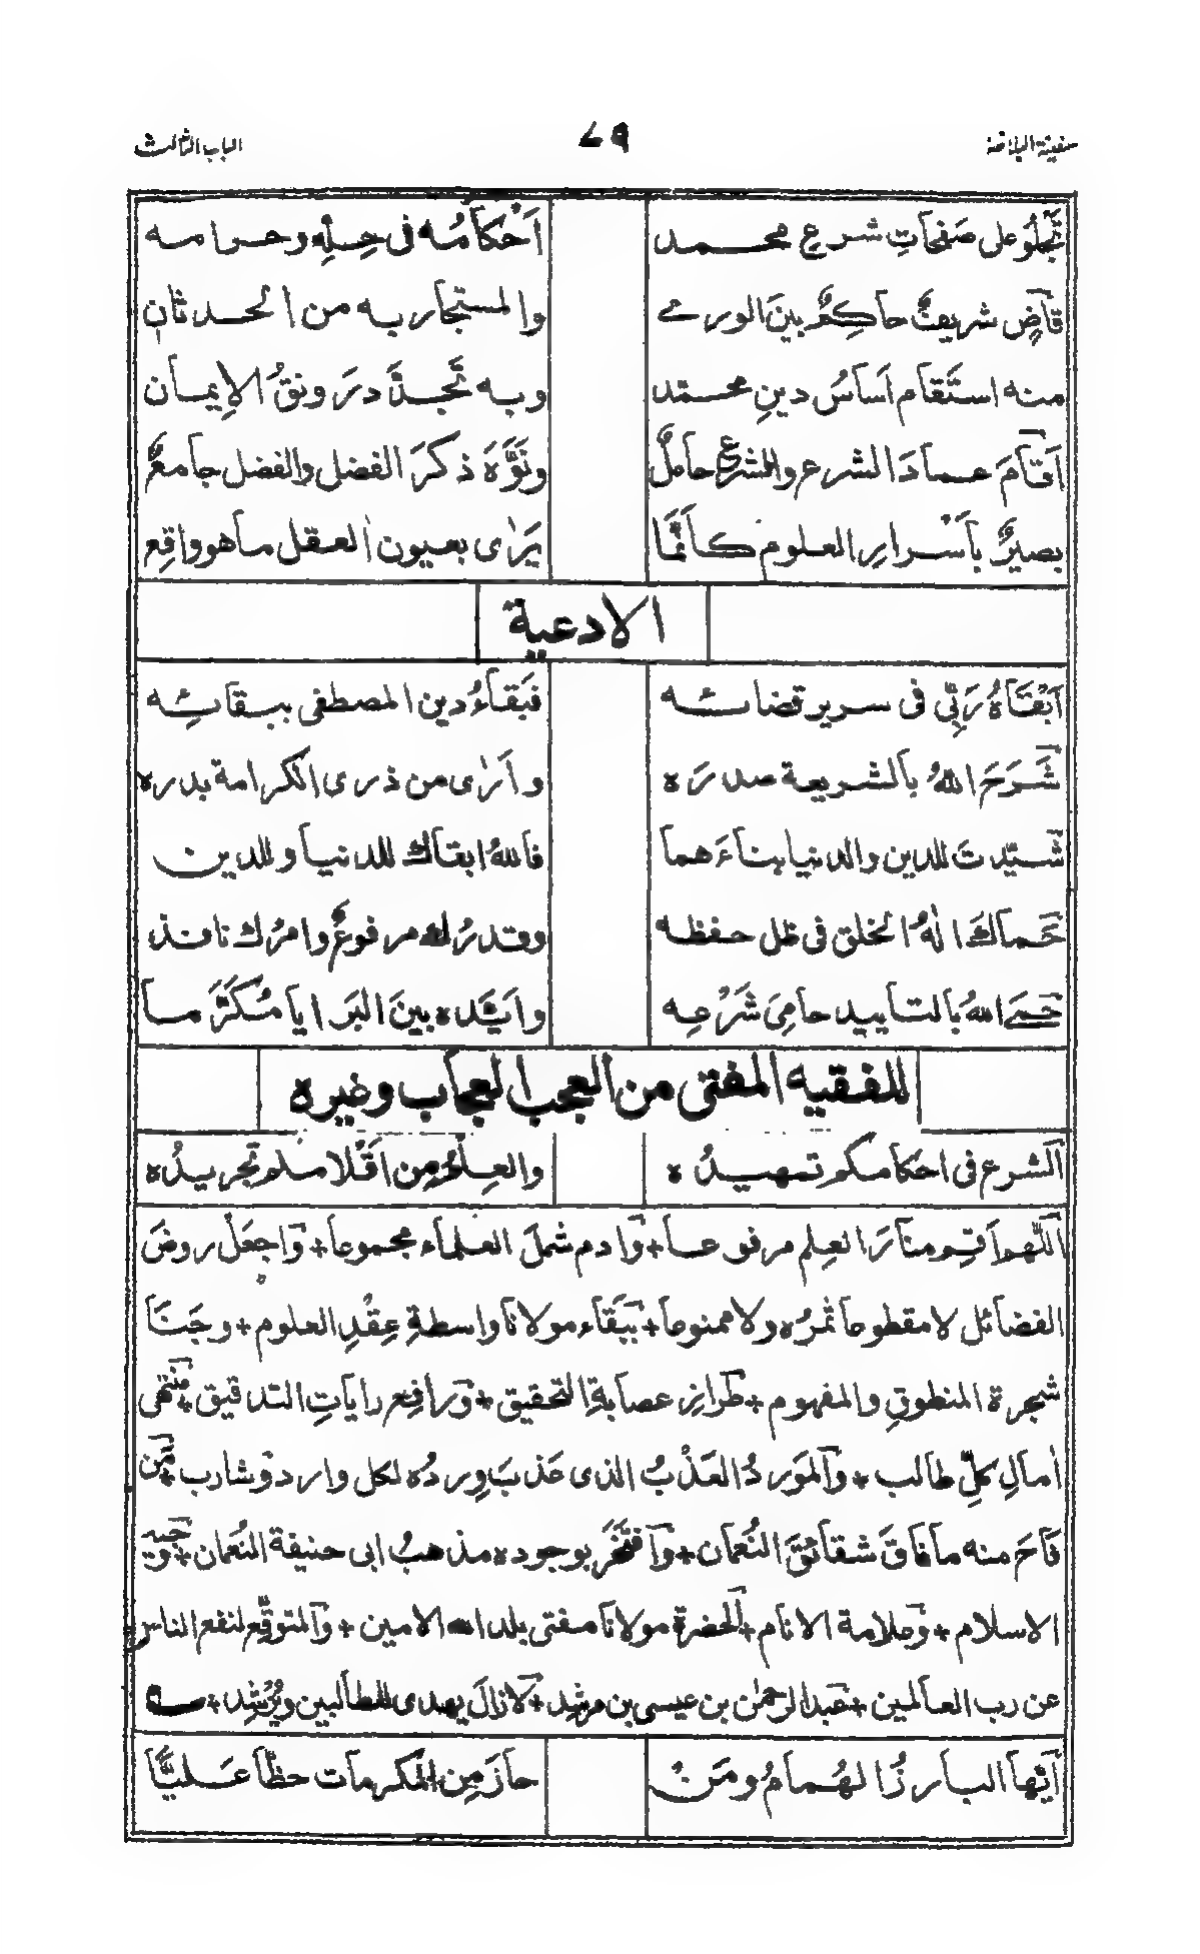 سفينة البلاغة ٧٩ الباب الثالث
تَجْلُو على صَفحاتِ شرعِ محمد اَحْكامُه فى حِلِّهِ وحرامه
قاضٍ شريفٌ حاكمٌ بينَ الورے والمستجار به من الحدثانِ
منه استقام اَساسُ دينِ محمّد وبه تَجدَّدَ رَونقُ الاِيمان
اَقامَ عمادَ الشرع والشرعُ حاملٌ ونَوَّهَ ذكرَ الفضل والفضل جامعٌ
بصيرٌ بأَسْرارِ العلوم كأَنَّما يَرٰى بعيون العقل ما هو واقع
الادعية
اَبْقَاهُ رَبِّى فى سرير قضائه فبَقاءُ دين المصطفى ببقائِه
شَرَحَ اللهُ بالشريعة صدرَه وارٰى من ذرى الكرامة بدره
شَيّدتَ للدين والدنيا بناءَهما فاللهُ ابقاك للدنيا وللدين
حَماكَ الٰهُ الخلق فى ظل حفظه وقدرُك مرفوعٌ وامرُك نافذ
حَمَے اللهُ بالتأييد حامِىَ شَرْعِه واَيَّده بينَ البَرايا مُكَرَّما
للفقيه المفتى من العجب العجاب وغيره
الشرع فى احكامكم تمهيدُه والعِلمُ مِن اَقْلامكم تجريدُه
اللّهم اَقِم منارَ العِلم مرفوعا + وادم شملَ العلماء مجموعا + واجعل روضَ
الفضائل لا مقطوعا ثمرُه ولا ممنوعا + ببَقاء مولانا واسطةِ عِقْدِ العلوم + وجَنَا
شجرة المنطوقِ والمفهوم + طرازِ عصابةِ التحقيق + ورافِع راياتِ التدقيق + منتهى
اٰمالِ كلِّ طالب + والمَوردُ العَذْبُ الذى عَذبَ وِردُه لكل وارد وشارب + مَن
فاحَ منه ما فاقَ شقائقَ النُعمان + وافتَخَر بوجوده مذهبُ ابى حنيفة النُعمان + وحيد
الاسلام + وعلامة الانام + الحضرة مولانا مفتى بلد الله الامين + والمتوقّع لنفع الناس
عن رب العالمين + عبد الرحمٰن بن عيسى بن مرشد + لا زالَ يهدى للطالبين ويُرْشِد +
اَيّها البارزُ الهُمامُ ومَنْ حازَ مِن المكرمات حظّا عَليَّا